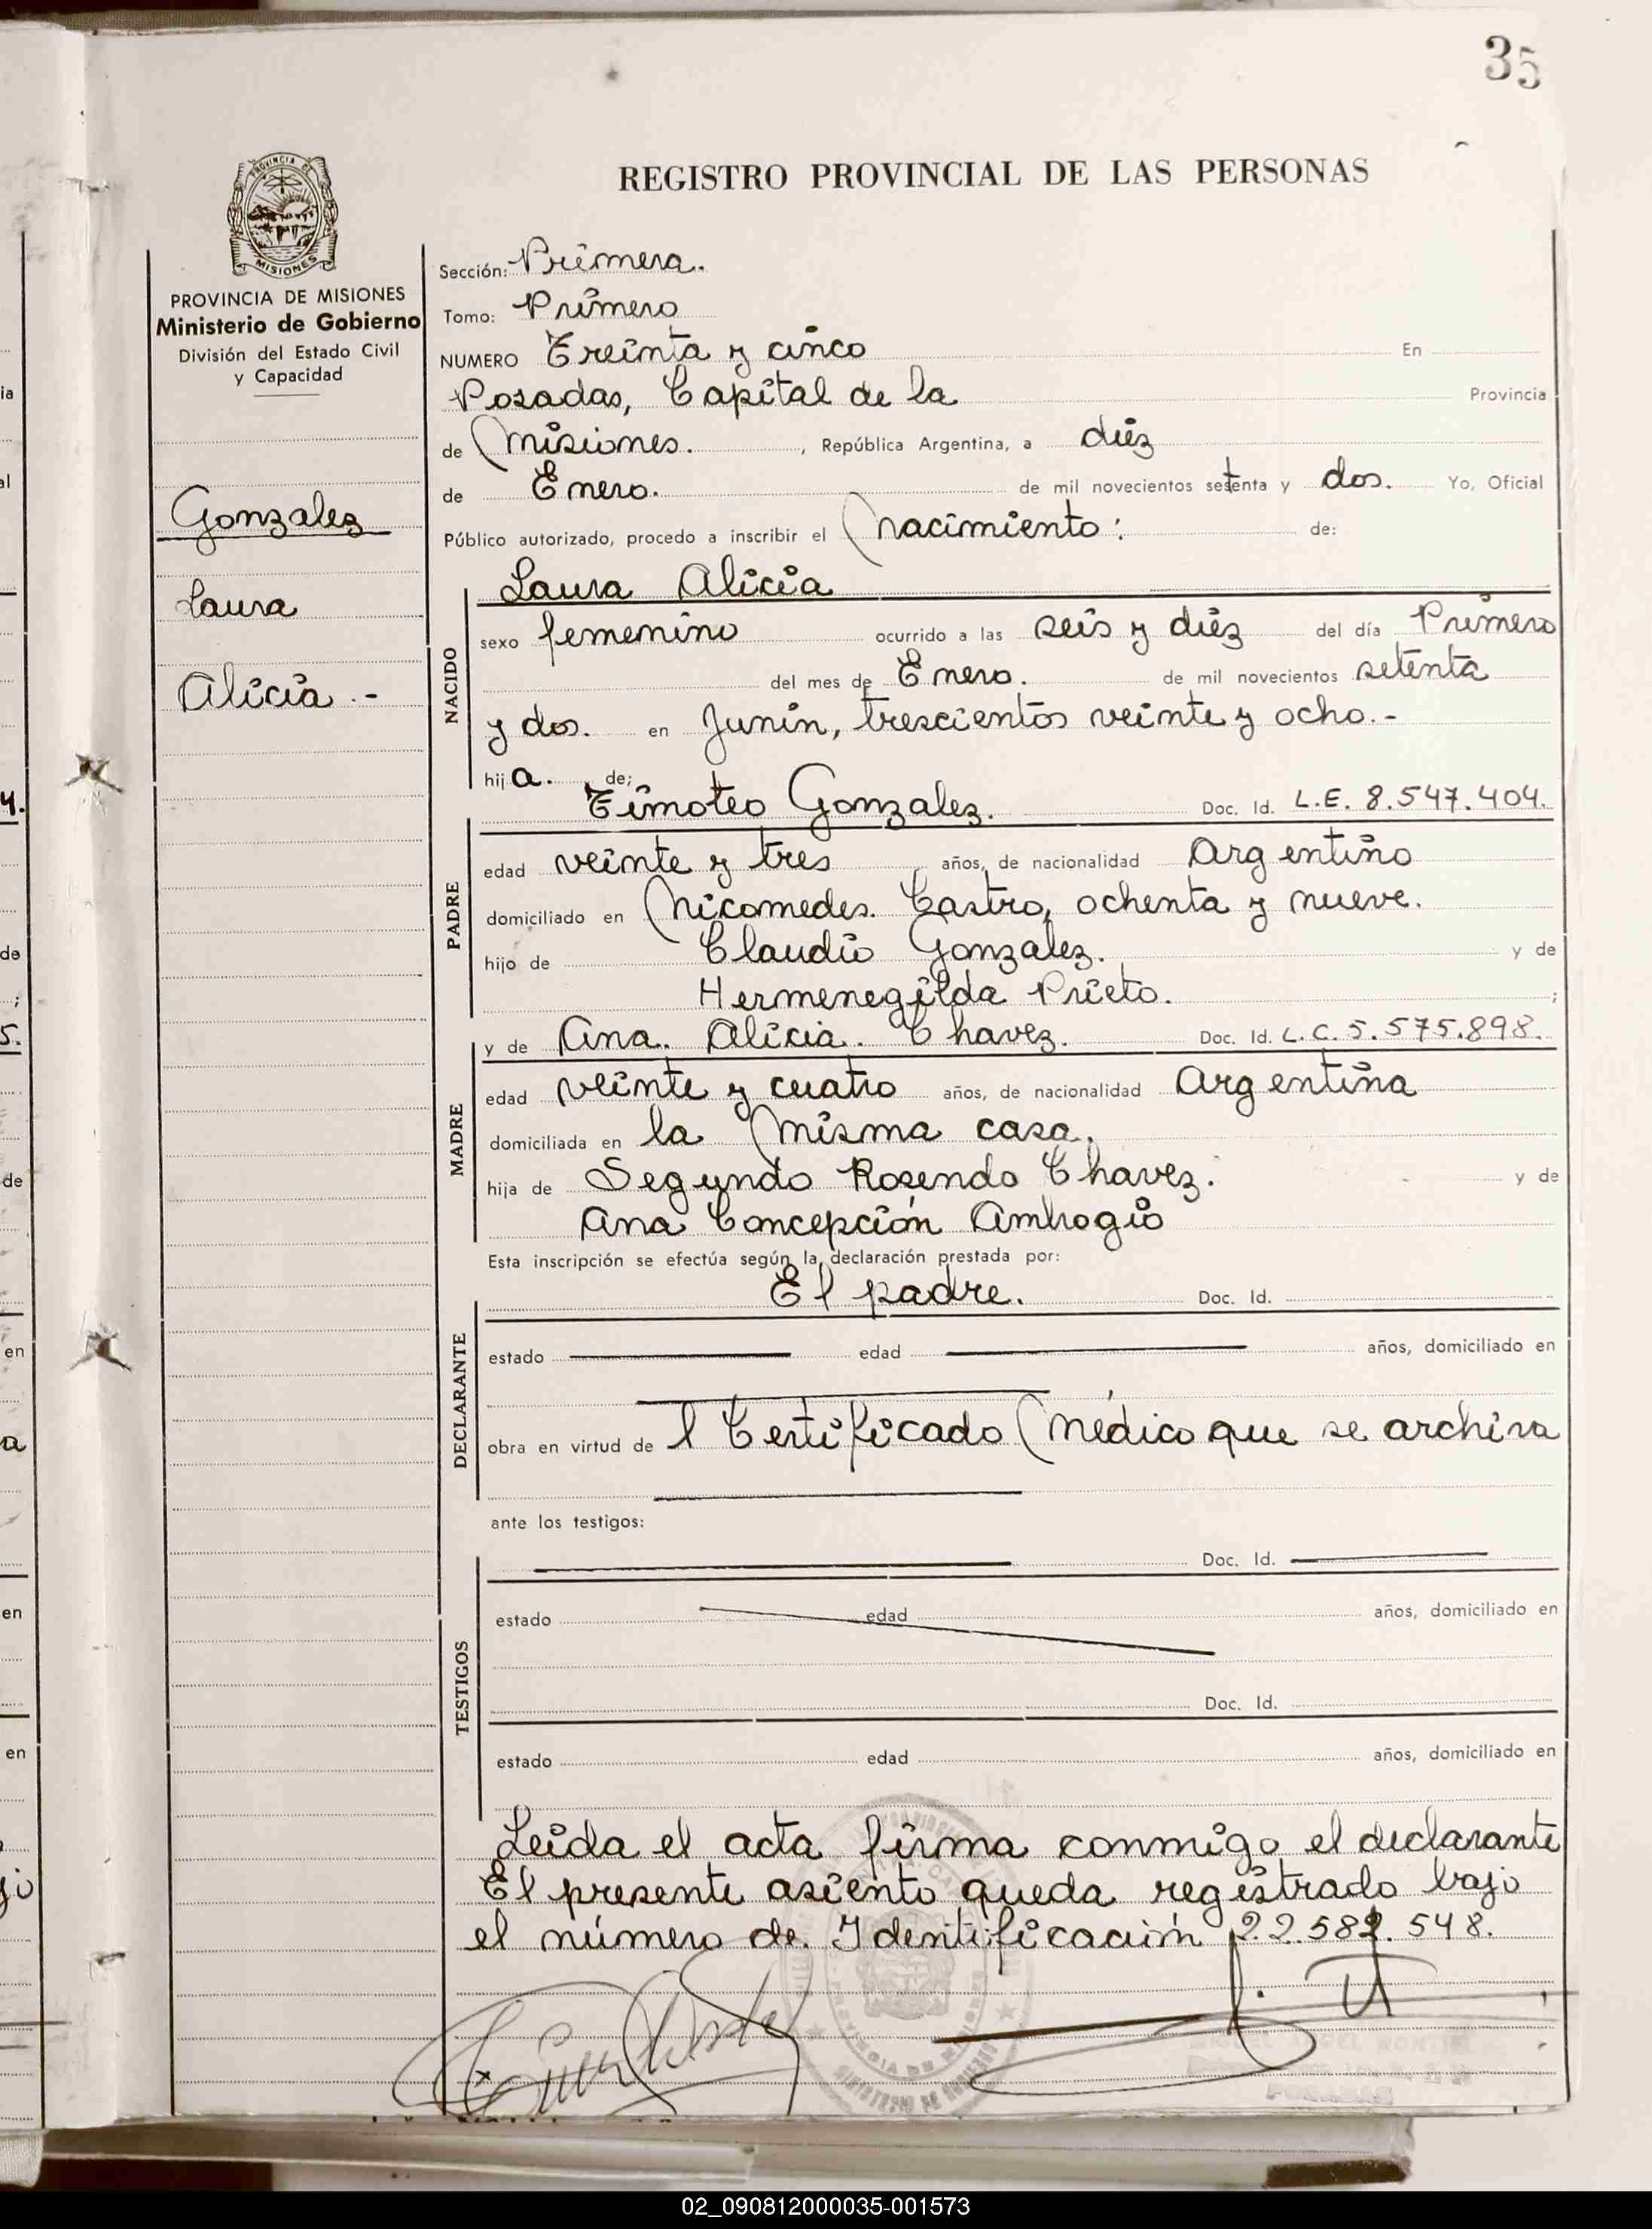 35
REGISTRO PROVINCIAL DE LAS PERSONAS
PROVINCIA DE
MISIONES
PROVINCIA DE MISIONES
Ministerio de Gobierno
División del Estado Civil
y Capacidad
Gonzalez
Laura
Alicia.-
Sección: Primera.
Tomo: Primero
NUMERO Treinta y cinco En
Posadas, Capital de la Provincia
de Misiones. , República Argentina, a diéz
de Enero. de mil novecientos setenta y dos. Yo, Oficial
Público autorizado, procedo a inscribir el Nacimiento: de:
NACIDO
Laura Alicia
sexo femenino ocurrido a las seis y diéz del día Primero
del mes de Enero. de mil novecientos setenta
y dos. en Junín, trescientos veinte y ocho.-
hija. de;
Timoteo Gonzalez. Doc. Id. L.E. 8.547.404.
PADRE
edad veinte y tres años, de nacionalidad Argentino
domiciliado en Nicomedes. Castro, ochenta y nueve.
hijo de Claudio Gonzalez. y de
Hermenegilda Prieto. ;
y de Ana. Alicia. Chavez. Doc. Id. L.C. 5.575.898.
MADRE
edad veinte y cuatro años, de nacionalidad Argentina
domiciliada en la misma casa.
hija de Segundo Rosendo Chavez. y de
Ana Concepción Ambrogio
Esta inscripción se efectúa según la declaración prestada por:
El padre. Doc. Id.
DECLARANTE
estado edad años, domiciliado en
obra en virtud de l Certificado Médico que se archiva
ante los testigos:
Doc. Id.
TESTIGOS
estado edad años, domiciliado en
Doc. Id.
estado edad años, domiciliado en
Leida el acta firma conmigo el declarante
El presente asiento queda registrado bajo
el número de Identificación 22.582.548.
02_090812000035-001573